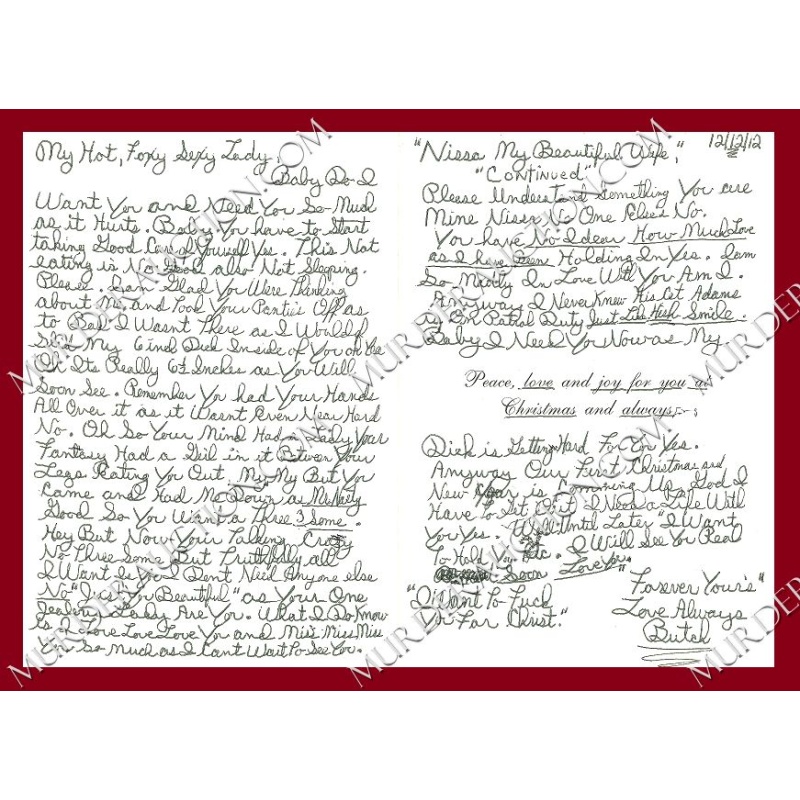 My Hot, Foxy Sexy Lady,
Baby Do I
Want You and Need You So Much
as it Hurts. Baby You have to Start
taking Good Care of Yourself Yes. This Not
eating is No Good also Not Sleeping.
Please. I am Glad You Were Thinking
about Me and Took Your Pantie's Off as
to Bad I Wasnt There as I Would
My 6 inch Dick Inside of You oh
Ok Its Really 6½ Inches as You Will
Soon See. Remember You had Your Hands
All Over it as it Wasnt Even Near Hard
No. Oh So Your Mind Had a Lady Your
Fantasy Had a Girl in it Between Your
Legs Eating You Out. My My But You
Came and Had Me Down as Mr. Nasty
Good So You Want a Three Some.
Hey But Now Your Talking Crazy
No Three Some But Truthfully all
I Want is You I Dent Need Anyone else
No "Do You Beautiful" as Your One
Baby Are You. What I Do Know
Is I Love Love Love You and Miss Miss Miss
You So Much as I Cant Wait To See You.
"Nissa My Beautiful Wife,"
12/12/12
"Continued"
Please Understand Something You are
Mine Nissa No One Elses No.
You have No Idear How Much Love
as I have Been Holding In Yes. I am
So Madly In Love With You Am I.
Anyway I Never Knew Adams
On Patrol Duty Just Like Smile.
Baby I Need You Now as My
Peace, love and joy for you at
Christmas and always.
Dick is Getting Hard For You Yes.
Anyway Our First Christmas and
New Year is Comming Up God I
Have to Get Out I Need a Life With
You Yes. Well Until Later "I Want
To Hold You, etc. I Will See You Real
Soon Love Ya"
"I Want To Fuck
Christ."
Forever Your's"
Love Always
Butch
MURDERAUCTION.COM